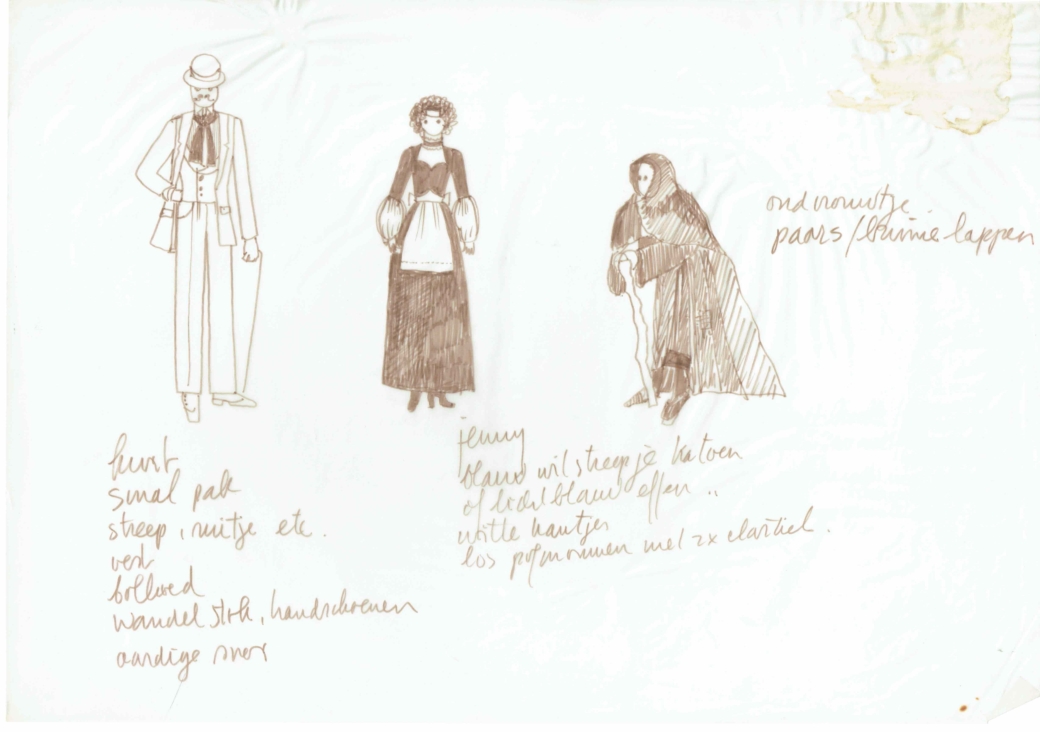 smal pak
streep, ruitje etc.
vest
bolhoed
wandelstok, handschoenen
aardige snor
jenny
blauw wit streepje katoen
of lichtblauw effen "
witte kantjes
los pofmouwen met 2x elastiek.
oud vrouwtje
paars / bruine lappen